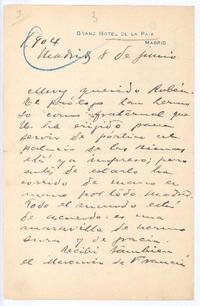 3
3
GRAND HOTEL DE LA PAIX
MADRID
1904
Madrid 8 de junio
Muy querido Rubén:
El prólogo tan hermo
so como fraternal que
U. ha erigido para
servir de pórtico al
palacio de las rimas
está ya impreso; pero
antes de estarlo ha
corrido de mano en
mano por todo Madrid.
Todo el mundo está
de acuerdo: es una
maravilla de hermo
sura y de gracia.
Recibí tambien
el Mercurio de Francia